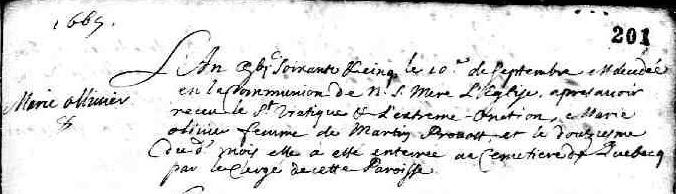 1665.
201
L'An gbjc Soixante & cinq les 10.e de Septembre est decedée
en la Communion de N. S. Mere L'Eglise, apres avoir
Marie ollivier
receu le St Viatique & L'extreme Onction, Marie
olivier femme de Martin Prevost, et le douziesme
du d. mois elle a esté enterrée au Cemetiere de Quebecq
par le Clergé de cette Paroisse